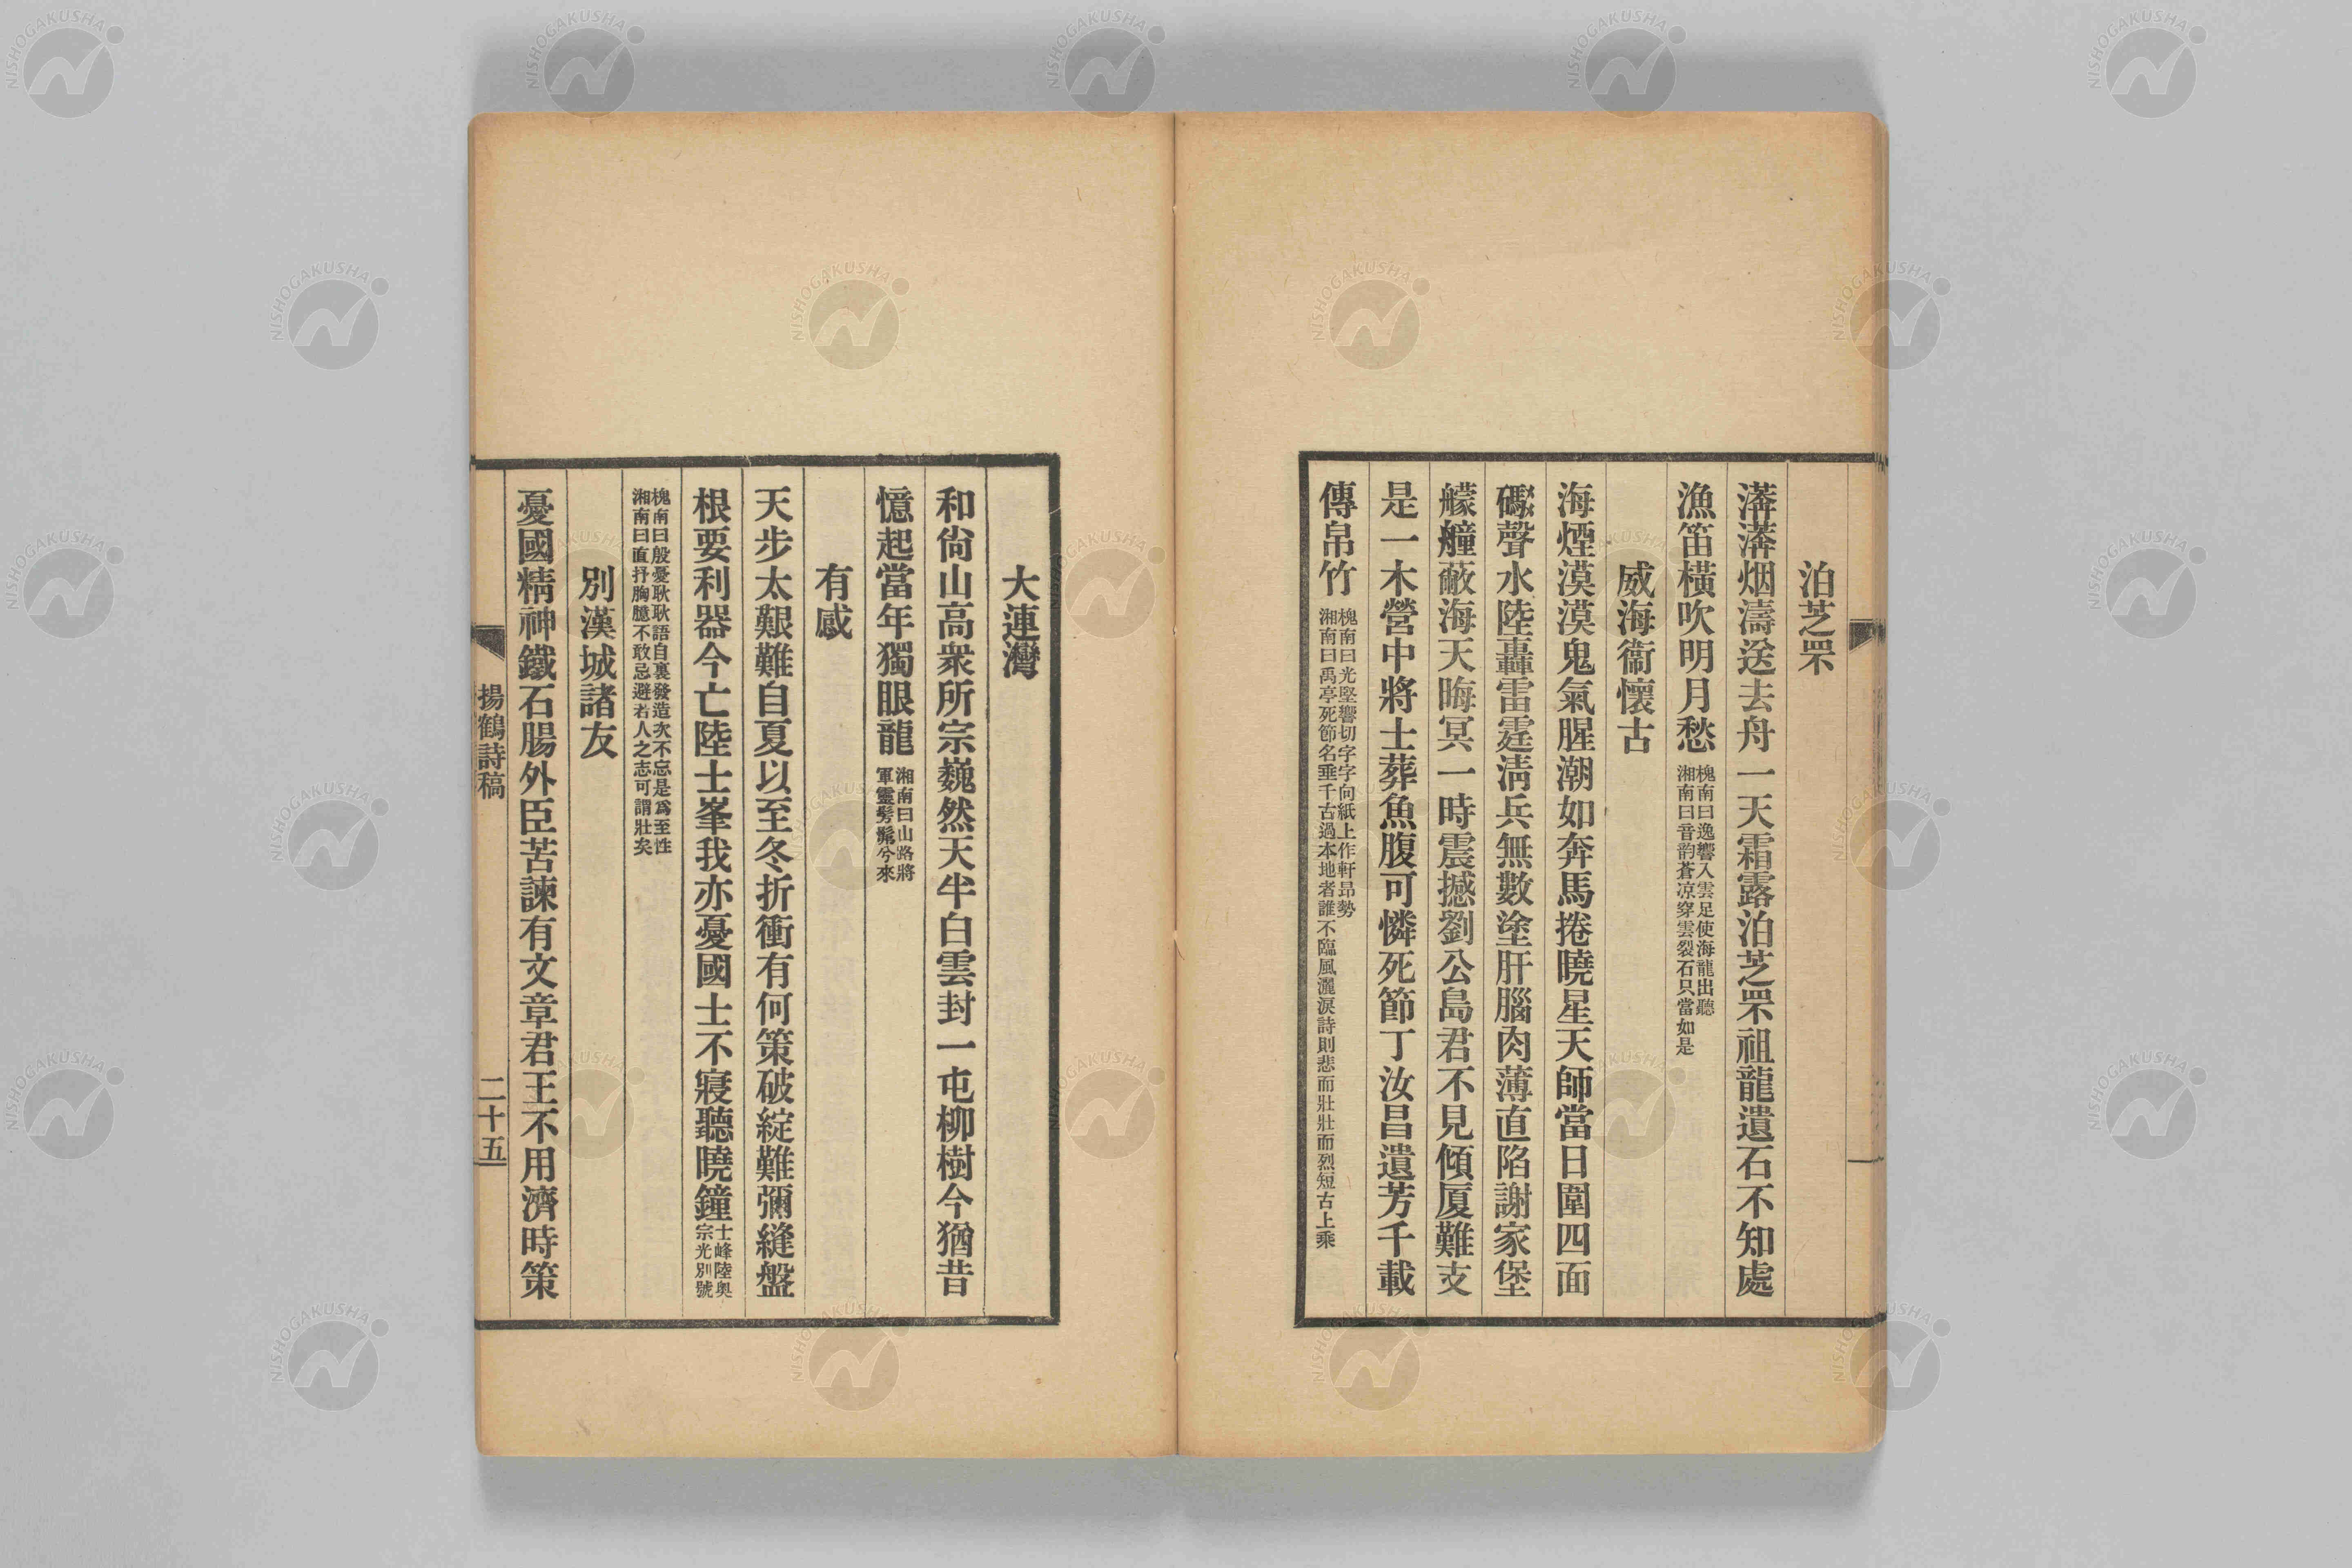 泊芝罘
漭漭烟濤送去舟一天霜露泊芝罘祖龍遺石不知處
漁笛橫吹明月愁
槐南曰逸響入雲足使海龍出聽
湘南曰音韵蒼凉穿雲裂石只當如是
威海衞懷古
海煙漠漠鬼氣腥潮如奔馬捲曉星天師當日圍四面
礮聲水陸轟雷霆淸兵無數塗肝腦肉薄直陷謝家堡
艨艟蔽海天晦冥一時震撼劉公島君不見傾厦難支
是一木營中將士葬魚腹可憐死節丁汝昌遺芳千載
傳帛竹
槐南曰光堅響切字字向紙上作軒昂勢
湘南曰禹亭死節名垂千古過本地者誰不臨風灑淚詩則悲而壯壯而烈短古上乘
大連灣
和尙山高衆所宗巍然天半白雲封一屯柳樹今猶昔
憶起當年獨眼龍
湘南曰山路將
軍靈髣髴兮來
有感
天步太艱難自夏以至冬折衝有何策破綻難彌縫盤
根要利器今亡陸士峯我亦憂國士不寢聽曉鐘
士峰陸奥
宗光別號
槐南曰殷憂耿耿語自裏發造次不忘是爲至性
湘南曰直抒胸臆不敢忌避若人之志可謂壯矣
別漢城諸友
憂國精神鐵石腸外臣苦諫有文章君王不用濟時策
揚鶴詩稿
二十五
NISHOGAKUSHA